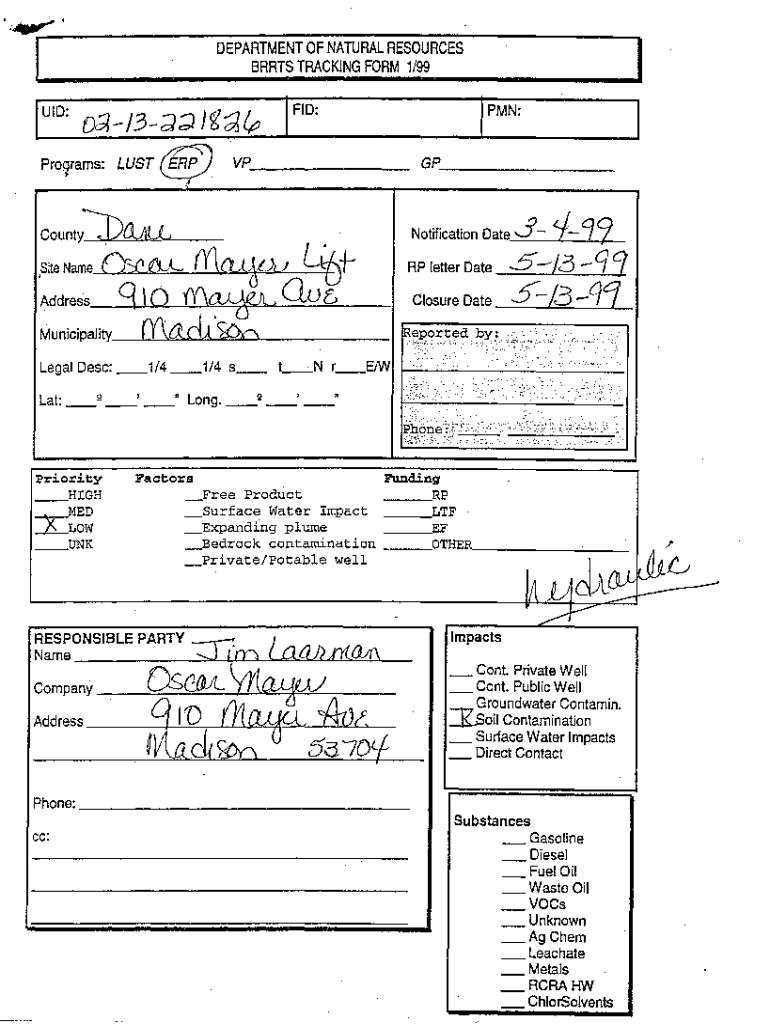 DEPARTMENT OF NATURAL RESOURCES
BRRTS TRACKING FORM 1/99
UID: 02-13-221826 FID: PMN:
Programs: LUST ERP VP GP
County Dane
Site Name Oscar Mayer Lift
Address 910 Mayer Ave
Municipality Madison
Legal Desc: 1/4 1/4 s t N r E/W
Lat: º ' " Long. º ' "
Notification Date 3-4-99
RP letter Date 5-13-99
Closure Date 5-13-99
Reported by:
Phone:
Priority Factors Funding
HIGH Free Product RP
MED Surface Water Impact LTF
X LOW Expanding plume EF
UNK Bedrock contamination OTHER
Private/Potable well
hydraulic
RESPONSIBLE PARTY
Name Jim Laarman
Company Oscar Mayer
Address 910 Mayer Ave
Madison 53704
Phone:
cc:
Impacts
Cont. Private Well
Cont. Public Well
Groundwater Contamin.
X Soil Contamination
Surface Water Impacts
Direct Contact
Substances
Gasoline
Diesel
Fuel Oil
Waste Oil
VOCs
Unknown
Ag Chem
Leachate
Metals
RCRA HW
ChlorSolvents